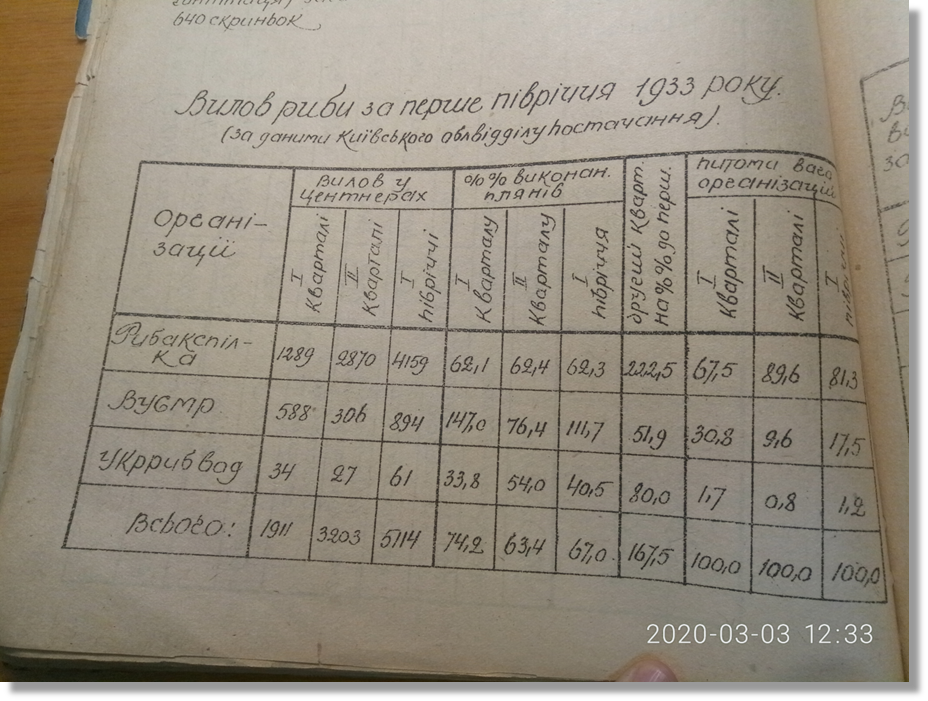 640 скриньок
Вилов риби за перше півріччя 1933 року.
(за даними Київського облвідділу постачання).
Органі-
зації
Вилов у
центнерах
%% виконан.
плянів
другий кварт.
на %% до перш.
питома вага
організацій
I
кварталі
II
кварталі
I
півріччі
I
кварталу
II
кварталу
I
півріччя
I
кварталі
II
кварталі
I
півріччі
Рибакспіл-
ка
1289 2870 4159 62,1 62,4 62,3 222,5 67,5 89,6 81,3
ВУЄМР 588 306 894 147,0 76,4 111,7 51,9 30,8 9,6 17,5
Укррибвод 34 27 61 33,8 54,0 40,5 80,0 1,7 0,8 1,2
Всього: 1911 3203 5114 74,2 63,4 67,0 167,5 100,0 100,0 100,0
2020-03-03 12:33